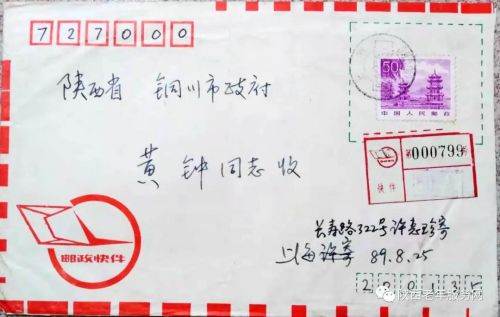 727000
陕西省 铜川市政府
黄钟同志收
50
中国人民邮政
№000799
快件
长寿路322号许志珍寄
上海 89.8.25
200135
邮政快件
陕西老年服务网